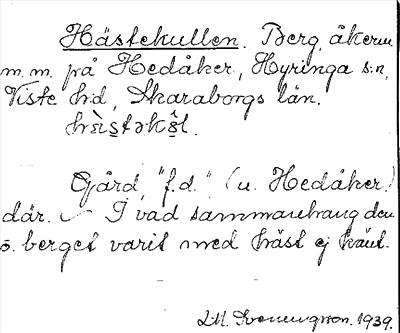 Hästekullen. Berg, åkrar
m.m. på Hedåker, Hyringa s:n,
Viste h:d, Skaraborgs län.
Gård, "f.d." (u. Hedåker)
där. I vad sammanhang den
o. berget varit med häst ej känt.
1939.